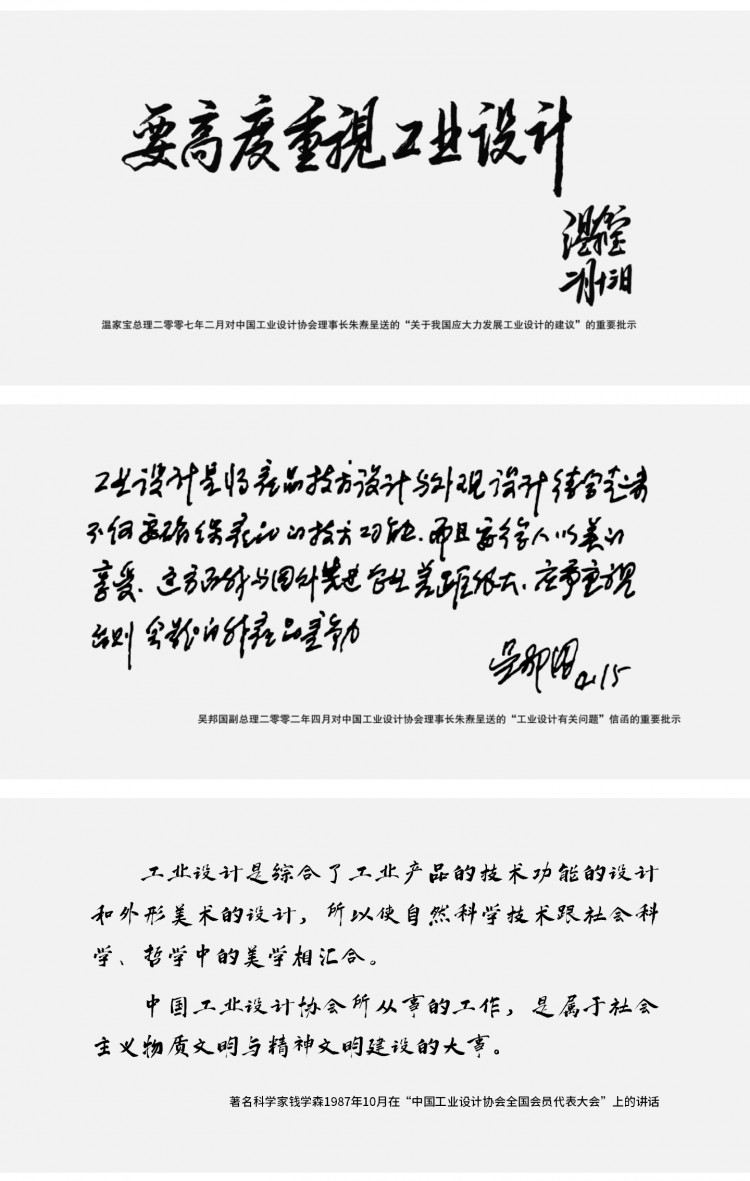 要高度重視工业设计
温家宝
二月十三日
温家宝总理二零零七年二月对中国工业设计协会理事长朱焘呈送的“关于我国应大力发展工业设计的建议”的重要批示
工业设计是将产品技术设计与外观设计结合起来
不仅要确保产品的技术功能，而且要给人以美的
享受。这方面我与国外先进企业差距很大，应予重视
否则 实能的
吴邦国 4.15
吴邦国副总理二零零二年四月对中国工业设计协会理事长朱焘呈送的“工业设计有关问题”信函的重要批示
工业设计是综合了工业产品的技术功能的设计
和外形美术的设计，所以使自然科学技术跟社会科
学、哲学中的美学相汇合。
中国工业设计协会所从事的工作，是属于社会
主义物质文明与精神文明建设的大事。
著名科学家钱学森1987年10月在“中国工业设计协会全国会员代表大会”上的讲话